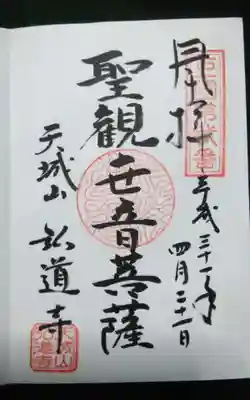 奉拝
平成三十一年
四月二十一日
聖観世音菩薩
天城山
弘道寺